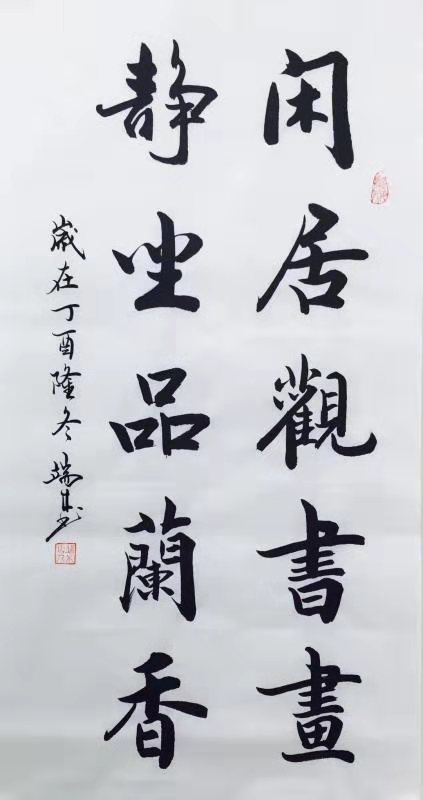 闲居觀書畫
静坐品蘭香
歲在丁酉隆冬 瑞彬